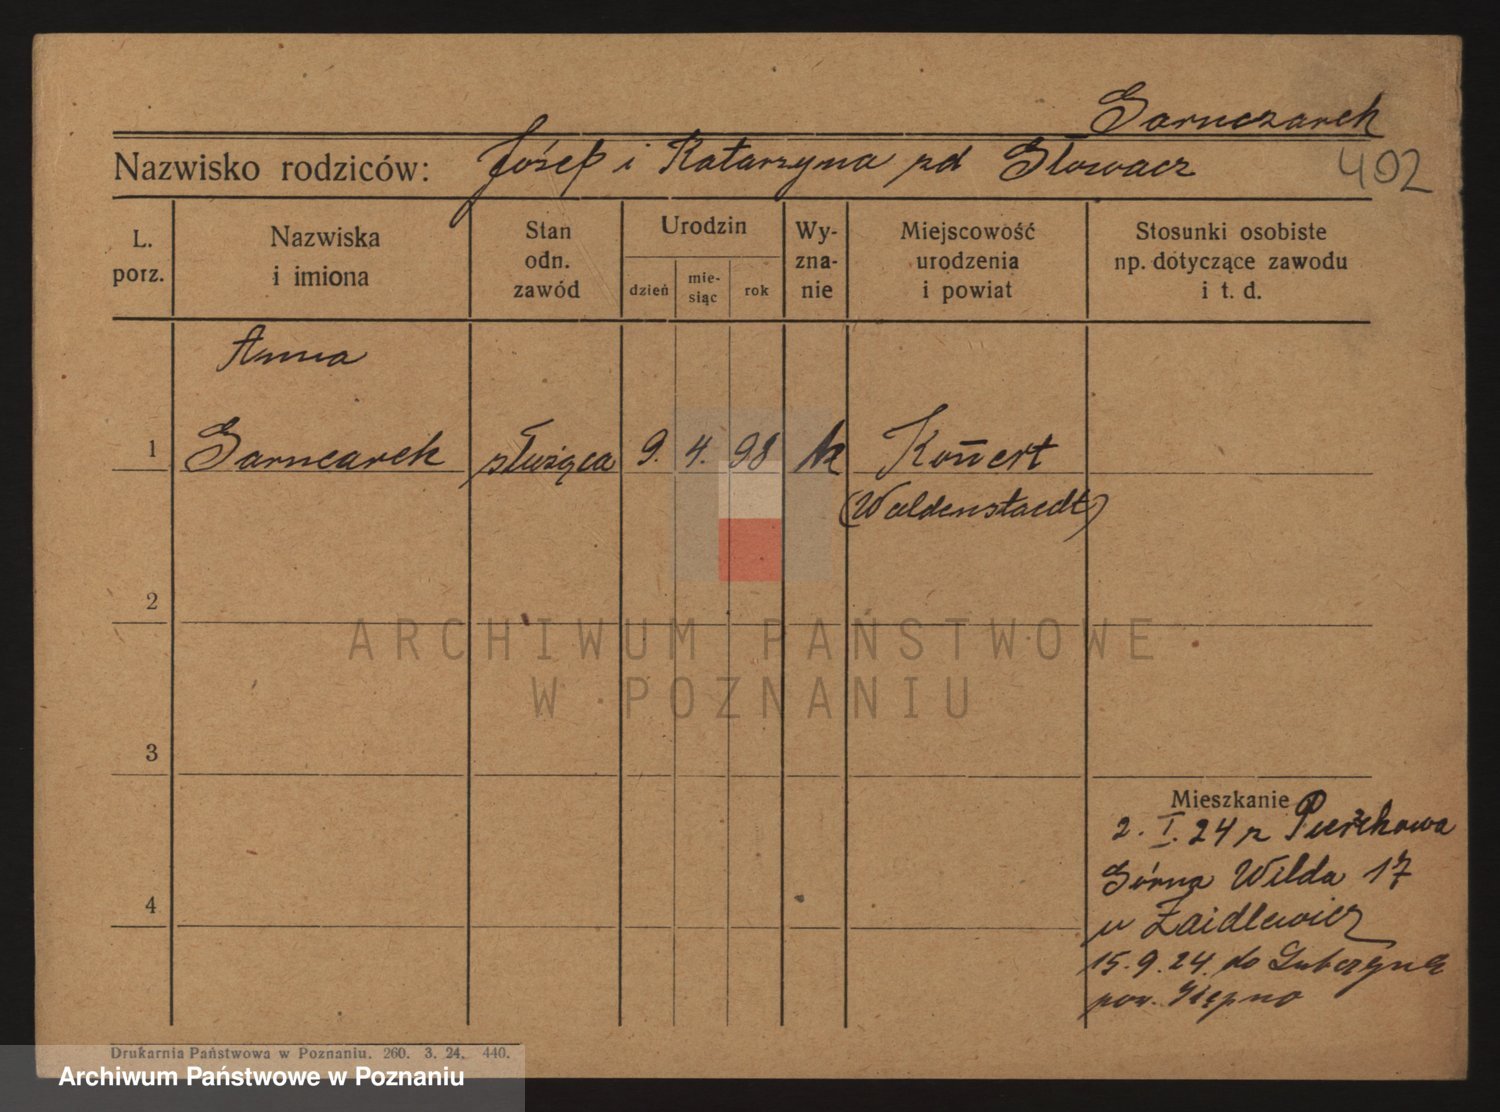 Garnczarek
Nazwisko rodziców: Józef i Katarzyna zd Słowacz
402
L. porz.
Nazwiska i imiona
Stan odn. zawód
Urodzin
dzień
mie-siąc
rok
Wy-zna-nie
Miejscowość urodzenia i powiat
Stosunki osobiste np. dotyczące zawodu i t. d.
Anna
1 Garncarek służąca 9. 4. 98 k
(Waldenstaedt)
2
ARCHIWUM PAŃSTWOWE
W POZNANIU
3
Mieszkanie
2. I. 24 z
Górna Wilda 17
u Zaidlewicz
4
15.9.24. do
pow. Kępno
Drukarnia Państwowa w Poznaniu. 260. 3. 24. 440.
Archiwum Państwowe w Poznaniu